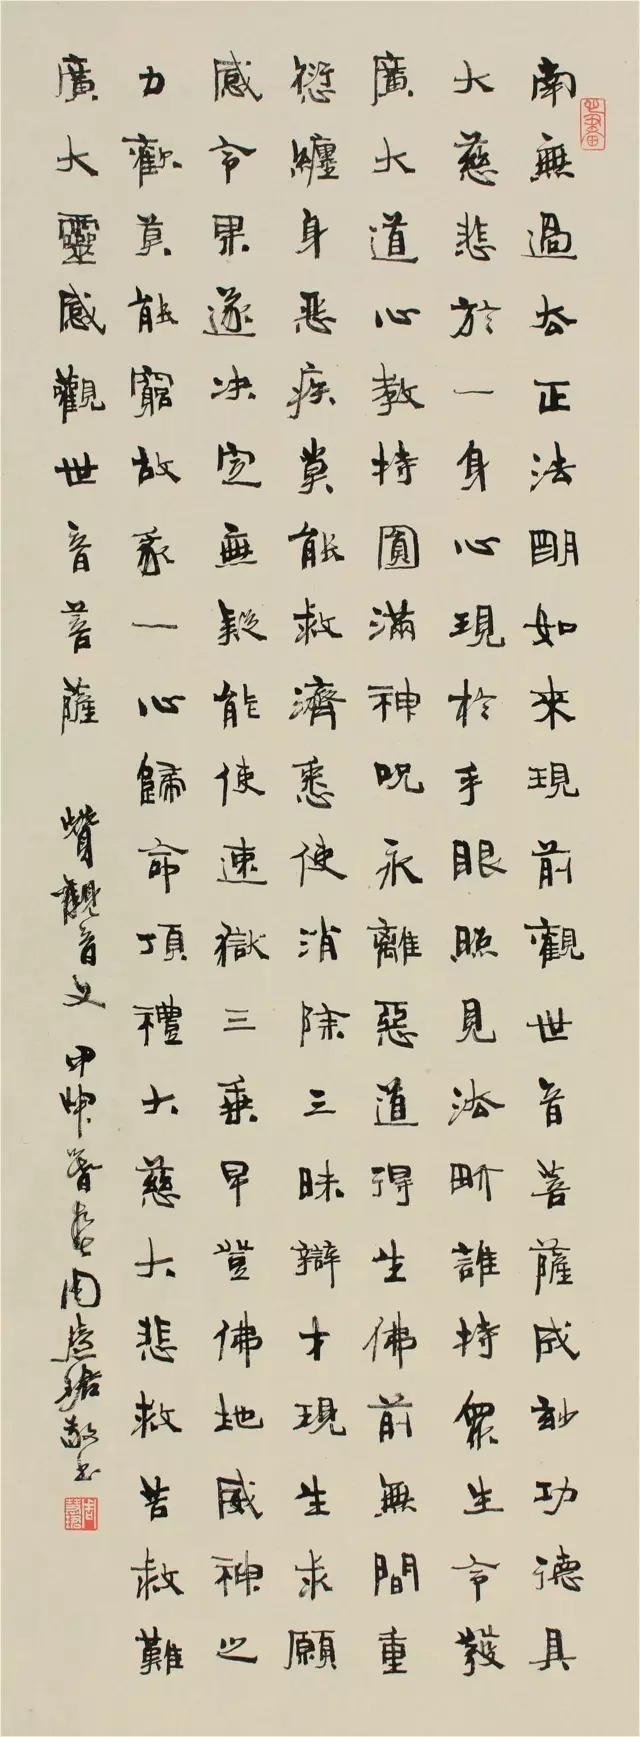 南無過去正法明如來現前觀世音菩薩成玅功德具
大慈悲於一身心現於手眼照見法界護持衆生令發
廣大道心教持圓滿神呪永離惡道得生佛前無間重
愆纏身惡疾莫能救濟悉使消除三昧辯才現生求願
咸令果遂決定無疑能使速獲三乘早登佛地威神之
力歎莫能窮故我一心歸命頂禮大慈大悲救苦救難
廣大靈感觀世音菩薩 贊觀音文 甲申 周慧珺敬書
周慧珺